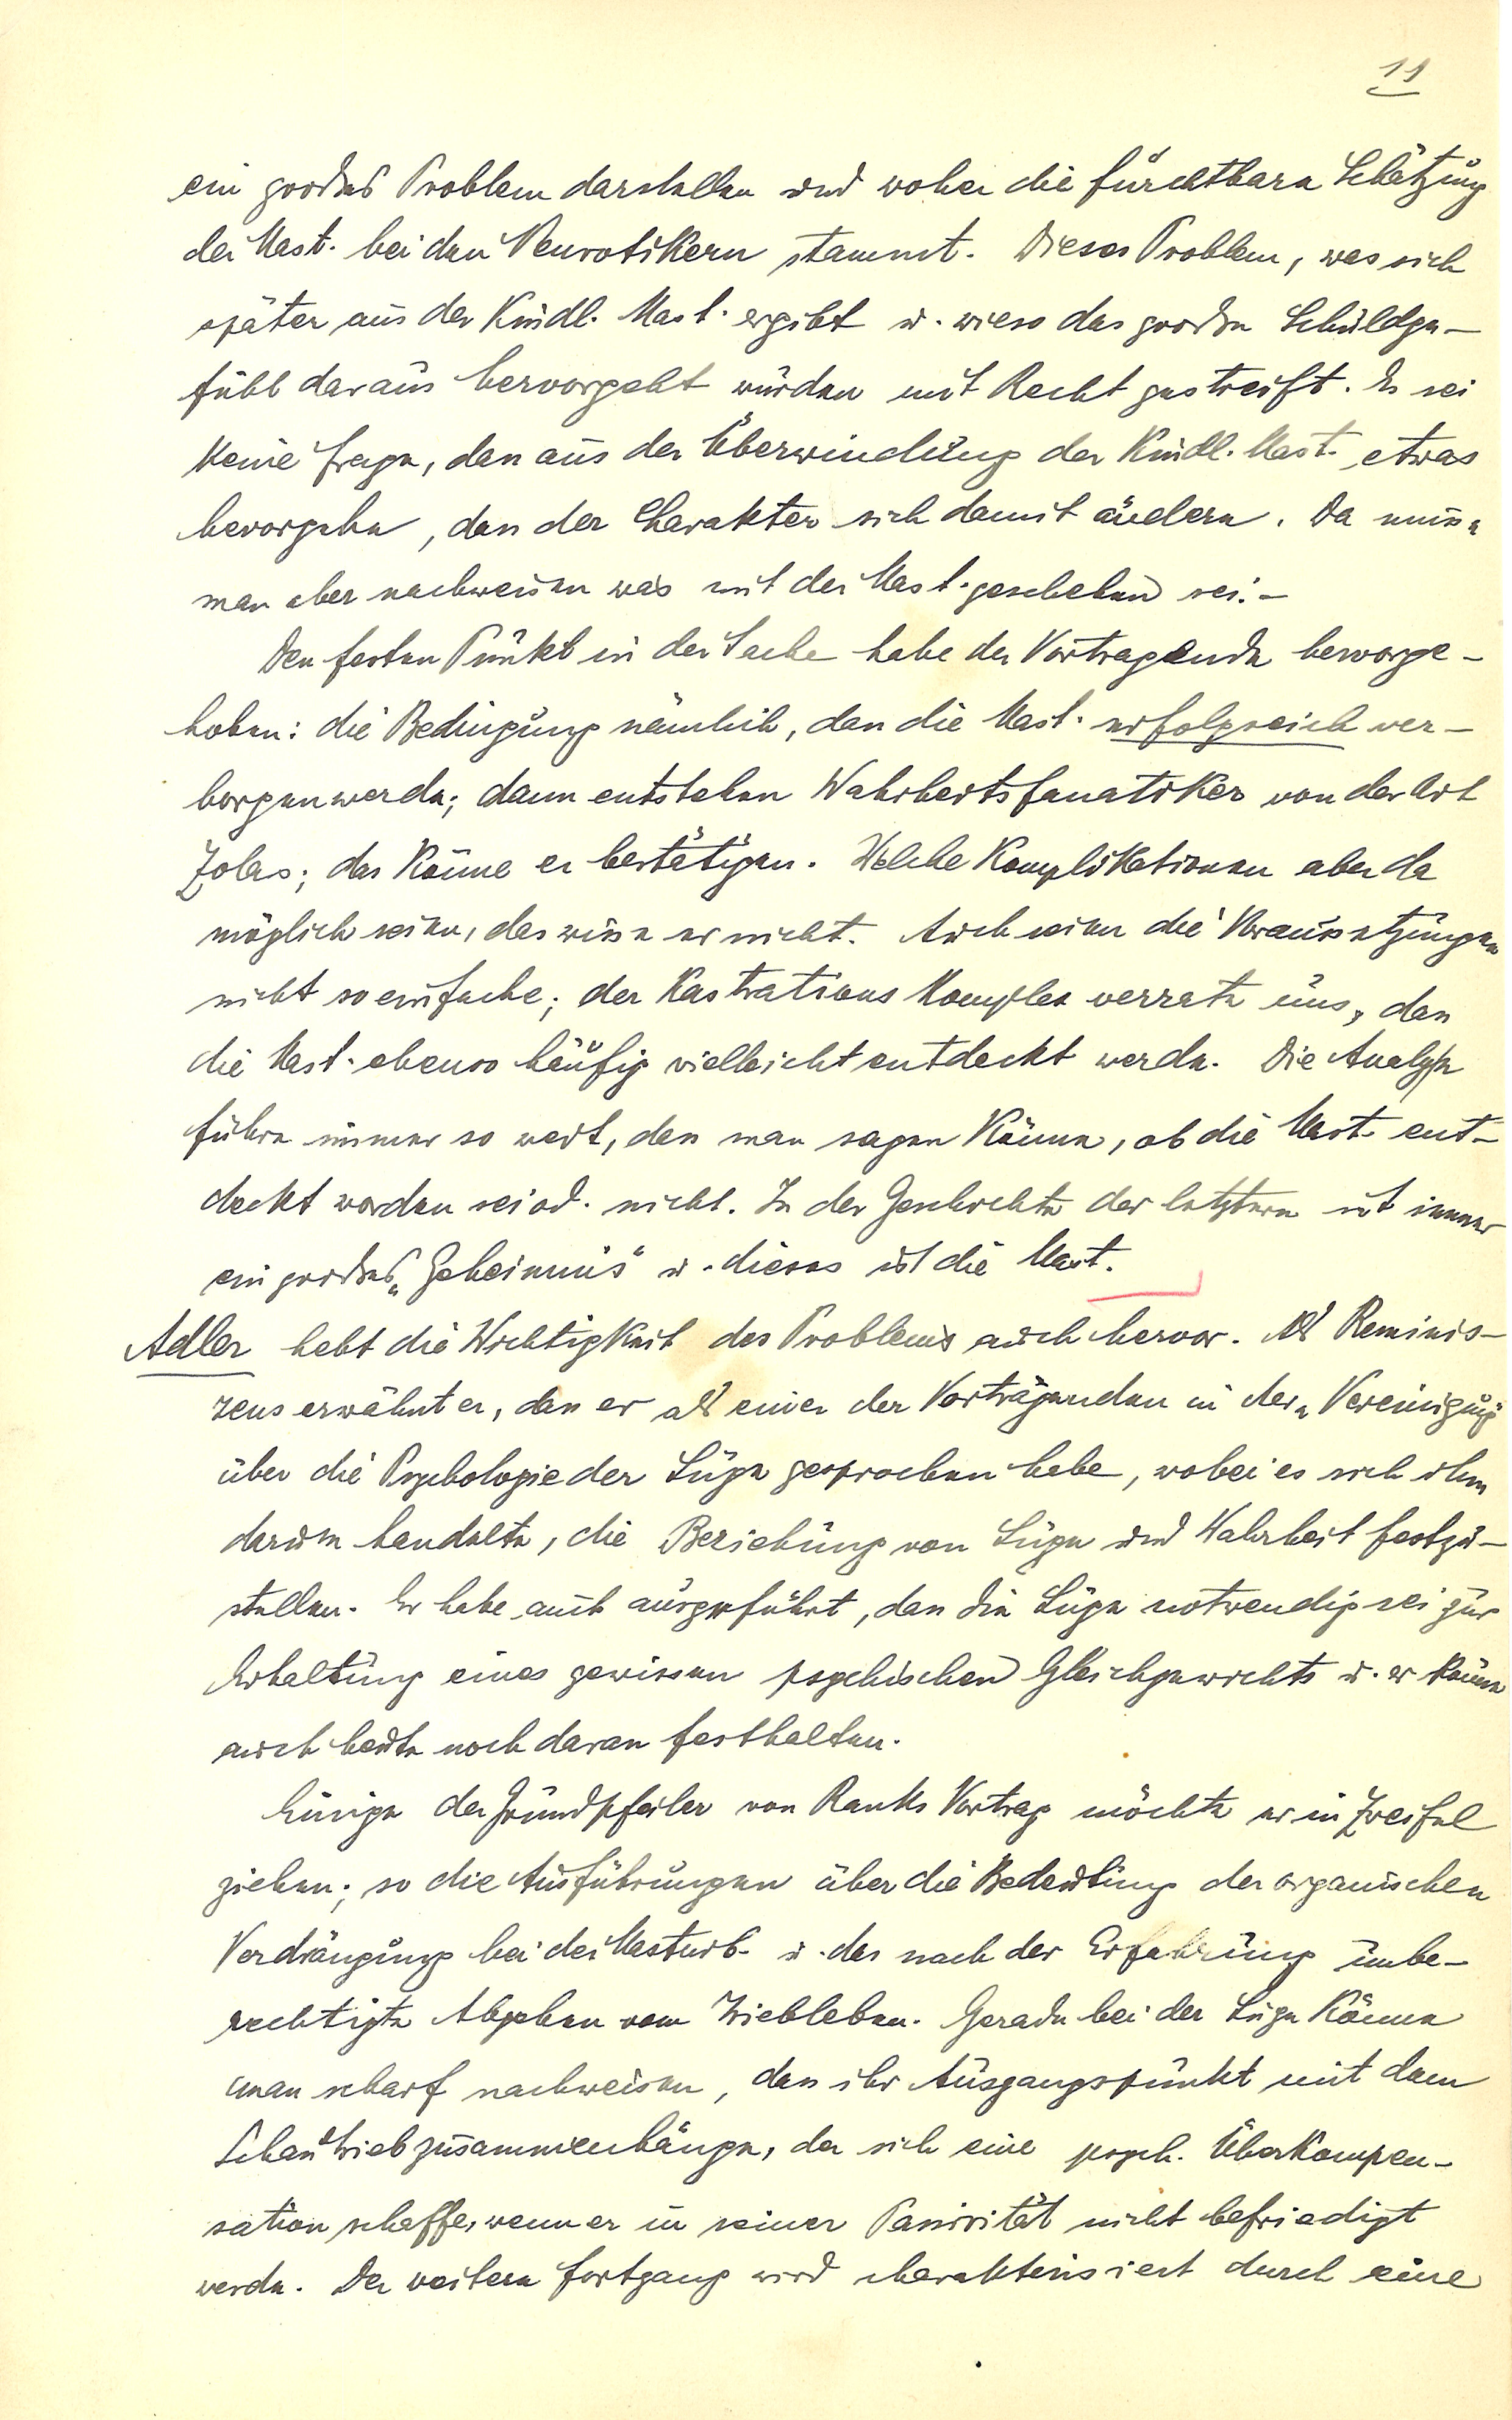 11
ein großes Problem darstellen und woher die furchtbare Schätzung
der Mast. bei den Neurotikern stammt. Dieses Problem, was sich
später aus der Kindl. Mast. ergibt u. wieso das große Schuldge-
fühl daraus hervorgeht würden mit Recht gestreift. Es sei
keine Frage, dass aus der Überwindung der Kindl. Mast. etwas
hervorgehe, dass der Charakter sich damit ändere. Da müsse
man aber nachweisen was mit der Mast. geschehen sei. –
Den festen Punkt in der Sache habe der Vortragende hervorge-
hoben: die Bedingung nämlich, dass die Mast. erfolgreich ver-
borgen werde; dann entstehen Wahrheitsfanatiker von der Art
Zolas; das könne er bestätigen. Welche Komplikationen aber da
möglich seien, das wisse er nicht. Auch seien die Voraussetzungen
nicht so einfache; der Kastrationskomplex verrate uns, dass
die Mast. ebenso häufig vielleicht entdeckt werde. Die Analyse
führe immer so weit, dass man sagen könne, ob die Mast. ent-
deckt worden sei od. nicht. In der Geschichte der letztern ist immer
ein großes „Geheimnis“ u. dieses ist die Mast.
Adler hebt die Wichtigkeit des Problems auch hervor. Als Reminis-
zens erwähnt er, dass er als einer der Vortragenden in der „Vereinigung“
über die Psychologie der Lüge gesprochen habe, wobei es sich ihm
darum handelte, die Beziehung von Lüge und Wahrheit festzu-
stellen. Er habe auch ausgeführt, dass die Lüge notwendig sei zur
Erhaltung eines gewissen psychischen Gleichgewichts u. er könne
auch heute noch daran festhalten.
Einige der Grundpfeiler von Ranks Vortrag möchte er in Zweifel
ziehen; so die Ausführungen über die Bedeutung der organischen
Verdrängung bei der Masturb. u. das nach der Erfahrung unbe-
rechtigte Abgehen vom Triebleben. Gerade bei der Lüge könne
man scharf nachweisen, dass ihr Ausgangspunkt mit dem
Schautrieb zusammenhänge, der sich eine psych. Überkompen-
sation schaffe, wenn er in seiner Passivität nicht befriedigt
werde. Der weitere Fortgang wird charakterisiert durch eine